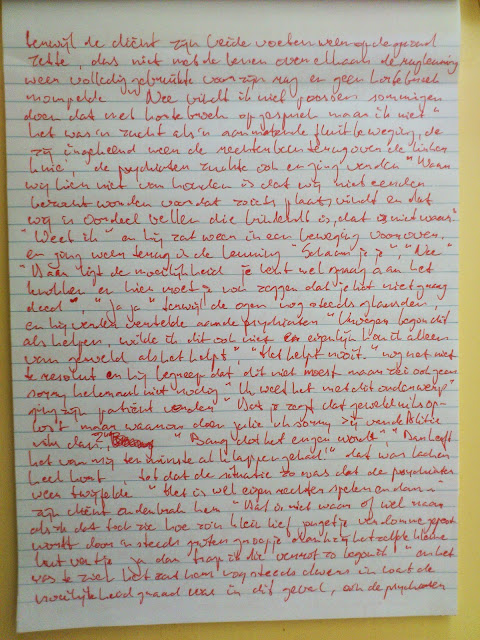 terwijl de cliënt zijn beide voeten weer op de grond
zette, dus niet met de benen over elkaar de rugleuning
weer volledig gebruikte voor zijn rug en geen
mompelde "Nee vindt ik niet passen sommigen
doen dat met korte broek op gesprek maar ik niet"
het was 'n zucht als 'n aanmoedende fluitbeweging, de
zij ingekeerd weer de rechterbeen terug over de linker
knie, de psychiater zuchtte ook en ging verder "Waar
wij hier niet van houden is dat wij niet eerder
bericht worden voordat zoiets plaats vindt en dat
wij 'n oordeel vellen die hinderlijk is, dat is niet waar"
"Weet ik" en hij zat weer in een beweging voorover,
en ging weer terug in de leuning "Schaam je je", "Nee"
"Daar ligt de moeilijkheid je komt wel graag aan het
en hier moet je van zeggen dat je het niet graag
deed", "Ja ja" terwijl de ogen nog steeds glansden,
en hij verder vertelde aan de psychiater "Vroeger begon dit
als helpen, wilde ik dit ook niet eigenlijk kan ik alleen
van geweld als het helpt" "Het helpt nooit" nog net niet
te resoluut en hij begreep dat dit niet moest maar zei ook geen
sorry helemaal niet nodig "Ik weet het met dit onderwerp"
ging zijn patiënt verder "Dat je zegt dat geweld niks op-
lost maar waarom doen jullie ik sorry zij van de Politie
van dan?" "Bang dat het erger wordt" "Dan heeft
het van mij ten minste al klappen gehad" dat was lachen
heel kort tot dat de situatie zo was dat de psychiater
weer twijfelde "Het is wel eigen rechter spelen en dan"
zijn cliënt onderbrak hem "Dat is niet waar of wel maar
als ik dat toch zie hoe zo'n klein lief jongetje verdomme gepest
wordt door 'n steeds groter groepje elke keer hetzelfde kleine
ventje ja dan trap ik die eerst zo begon ik" en het
was te zien het zat hem nog steeds dwars in wat de
moeilijkheidsgraad was in dit geval, ook de psychiater